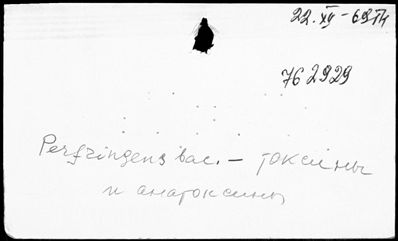 22.XII-69 г.
76 2929
Perfringens bac. – токсины
и анатоксины